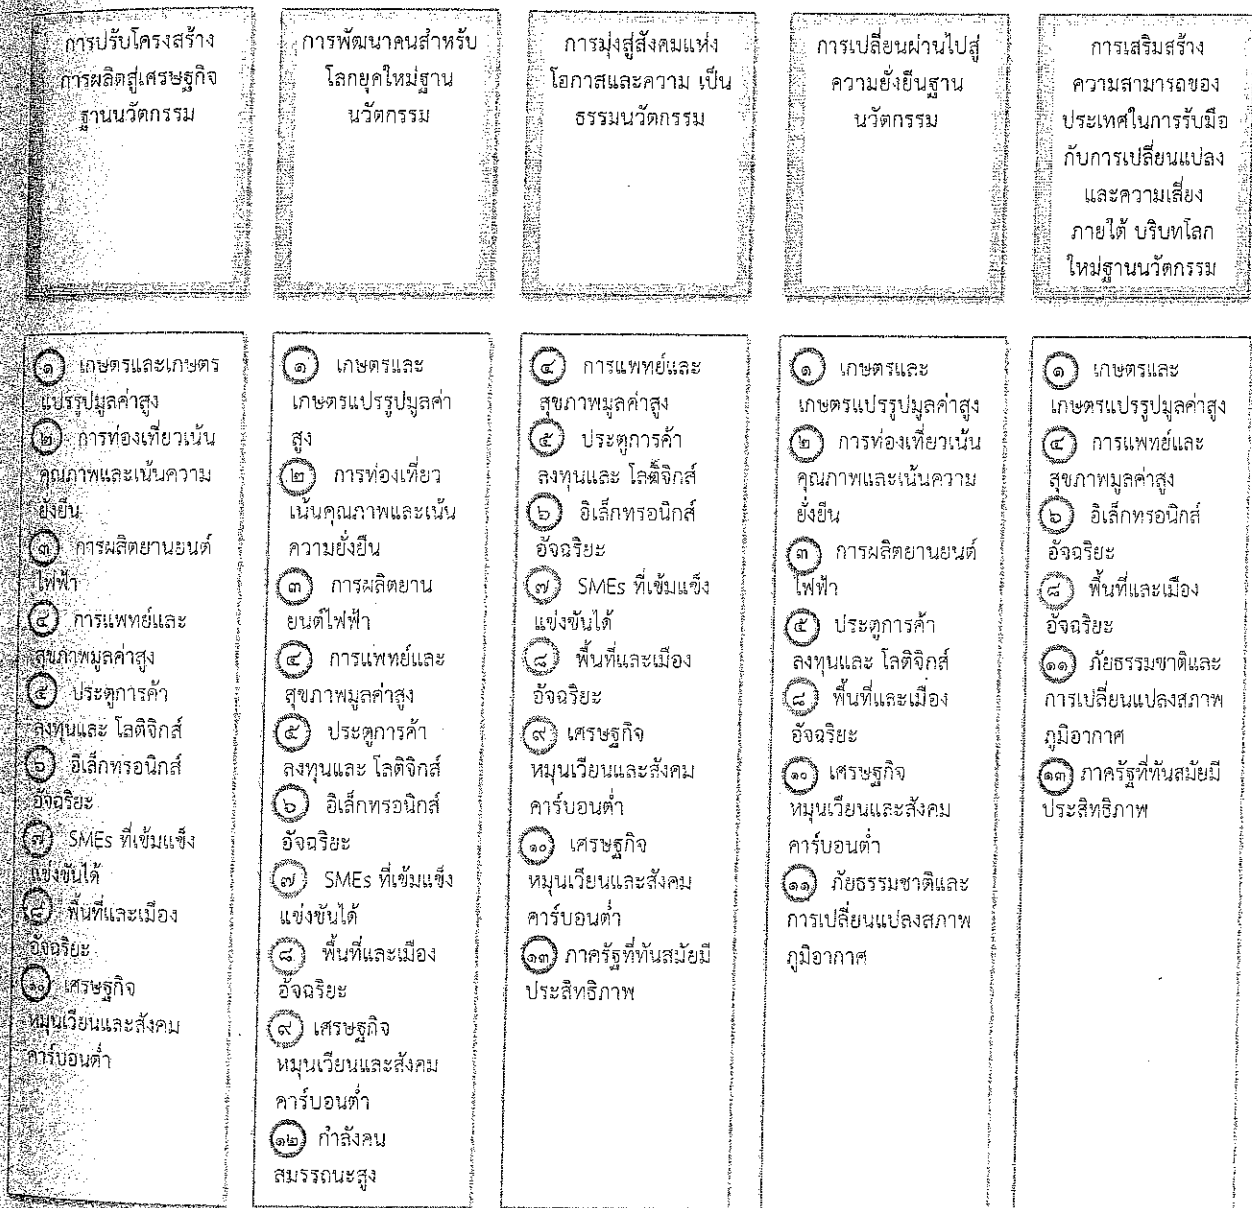 การปรับโครงสร้าง
การผลิตสู่เศรษฐกิจ
ฐานนวัตกรรม
การพัฒนาคนสำหรับ
โลกยุคใหม่ฐาน
นวัตกรรม
การมุ่งสู่สังคมแห่ง
โอกาสและความ เป็น
ธรรมนวัตกรรม
การเปลี่ยนผ่านไปสู่
ความยั่งยืนฐาน
นวัตกรรม
การเสริมสร้าง
ความสามารถของ
ประเทศในการรับมือ
กับการเปลี่ยนแปลง
และความเสี่ยง
ภายใต้ บริบทโลก
ใหม่ฐานนวัตกรรม
๑ เกษตรและเกษตร
แปรรูปมูลค่าสูง
๒ การท่องเที่ยวเน้น
คุณภาพและเน้นความ
ยั่งยืน
๓ การผลิตยานยนต์
ไฟฟ้า
๔ การแพทย์และ
สุขภาพมูลค่าสูง
๕ ประตูการค้า
ลงทุนและ โลติจิกส์
๖ อิเล็กทรอนิกส์
อัจฉริยะ
๗ SMEs ที่เข้มแข็ง
แข่งขันได้
๘ พื้นที่และเมือง
อัจฉริยะ
๑๐ เศรษฐกิจ
หมุนเวียนและสังคม
คาร์บอนต่ำ
๑ เกษตรและ
เกษตรแปรรูปมูลค่า
สูง
๒ การท่องเที่ยว
เน้นคุณภาพและเน้น
ความยั่งยืน
๓ การผลิตยาน
ยนต์ไฟฟ้า
๔ การแพทย์และ
สุขภาพมูลค่าสูง
๕ ประตูการค้า
ลงทุนและ โลติจิกส์
๖ อิเล็กทรอนิกส์
อัจฉริยะ
๗ SMEs ที่เข้มแข็ง
แข่งขันได้
๘ พื้นที่และเมือง
อัจฉริยะ
๙ เศรษฐกิจ
หมุนเวียนและสังคม
คาร์บอนต่ำ
๑๒ กำลังคน
สมรรถนะสูง
๔ การแพทย์และ
สุขภาพมูลค่าสูง
๕ ประตูการค้า
ลงทุนและ โลติจิกส์
๖ อิเล็กทรอนิกส์
อัจฉริยะ
๗ SMEs ที่เข้มแข็ง
แข่งขันได้
๘ พื้นที่และเมือง
อัจฉริยะ
๙ เศรษฐกิจ
หมุนเวียนและสังคม
คาร์บอนต่ำ
๑๐ เศรษฐกิจ
หมุนเวียนและสังคม
คาร์บอนต่ำ
๑๓ ภาครัฐที่ทันสมัยมี
ประสิทธิภาพ
๑ เกษตรและ
เกษตรแปรรูปมูลค่าสูง
๒ การท่องเที่ยวเน้น
คุณภาพและเน้นความ
ยั่งยืน
๓ การผลิตยานยนต์
ไฟฟ้า
๕ ประตูการค้า
ลงทุนและ โลติจิกส์
๘ พื้นที่และเมือง
อัจฉริยะ
๑๐ เศรษฐกิจ
หมุนเวียนและสังคม
คาร์บอนต่ำ
๑๑ ภัยธรรมชาติและ
การเปลี่ยนแปลงสภาพ
ภูมิอากาศ
๑ เกษตรและ
เกษตรแปรรูปมูลค่าสูง
๔ การแพทย์และ
สุขภาพมูลค่าสูง
๖ อิเล็กทรอนิกส์
อัจฉริยะ
๘ พื้นที่และเมือง
อัจฉริยะ
๑๑ ภัยธรรมชาติและ
การเปลี่ยนแปลงสภาพ
ภูมิอากาศ
๑๓ ภาครัฐที่ทันสมัยมี
ประสิทธิภาพ